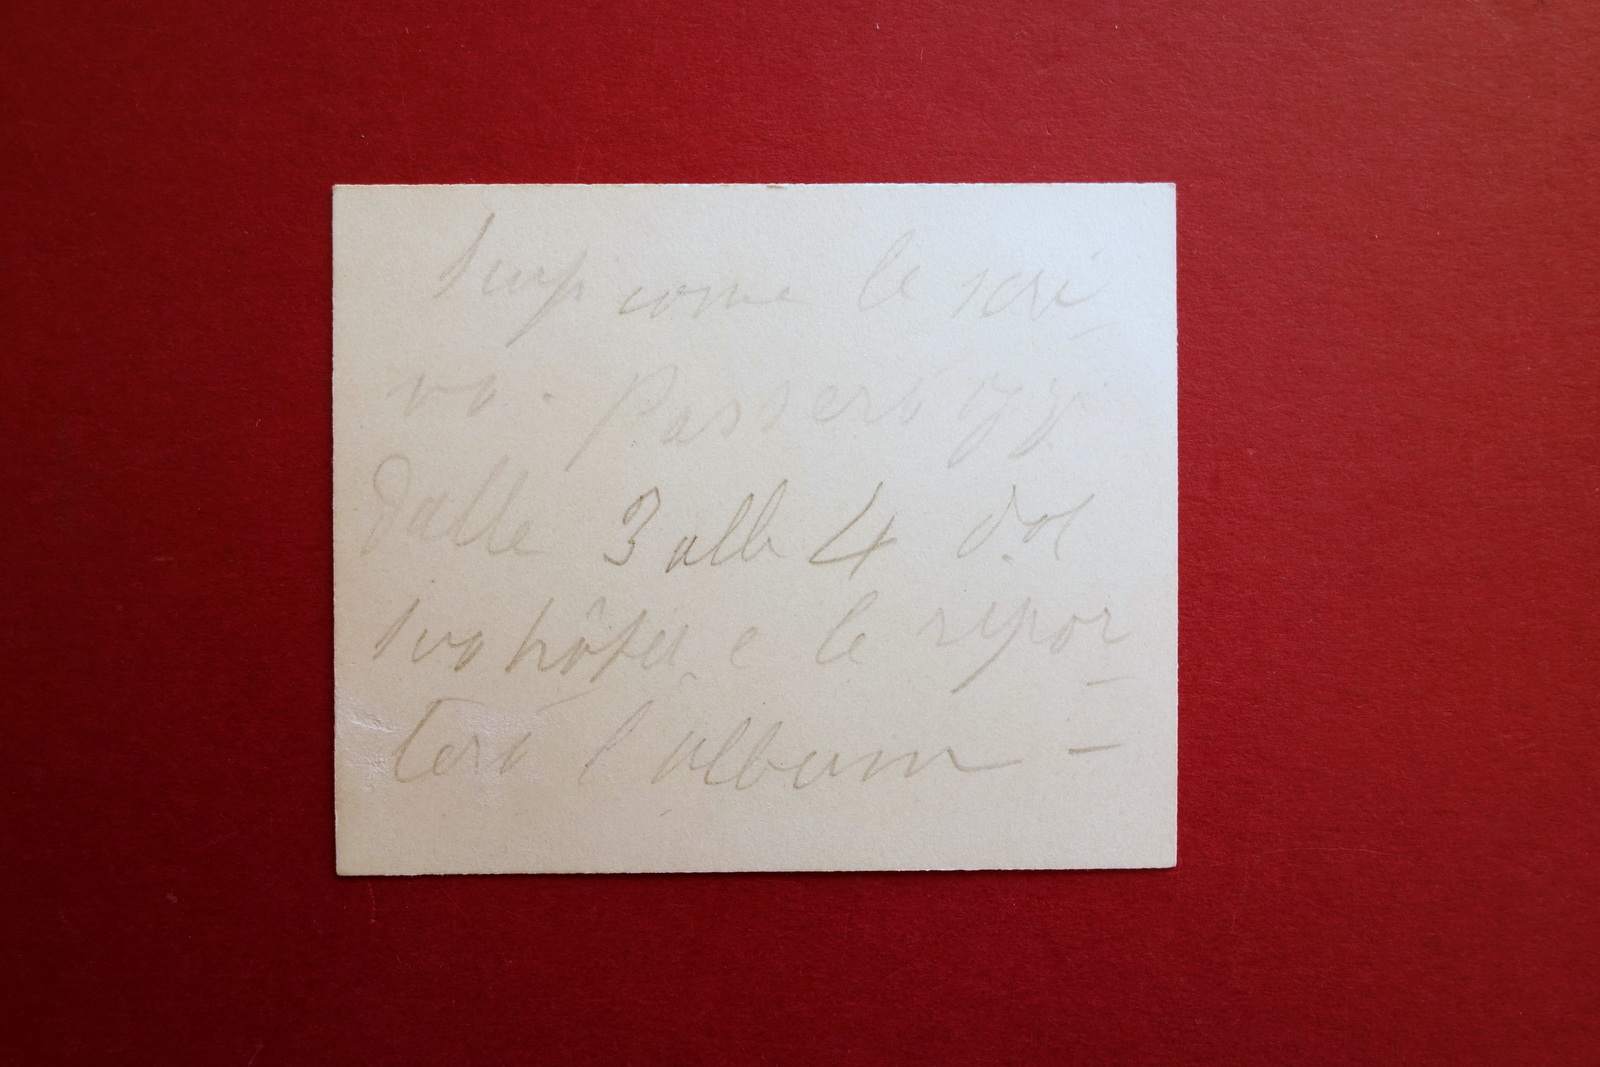 come le scri-
vo. Passerò oggi
dalle 3 alle 4 dal
suo hôtel e le ripor-
terò l'album –